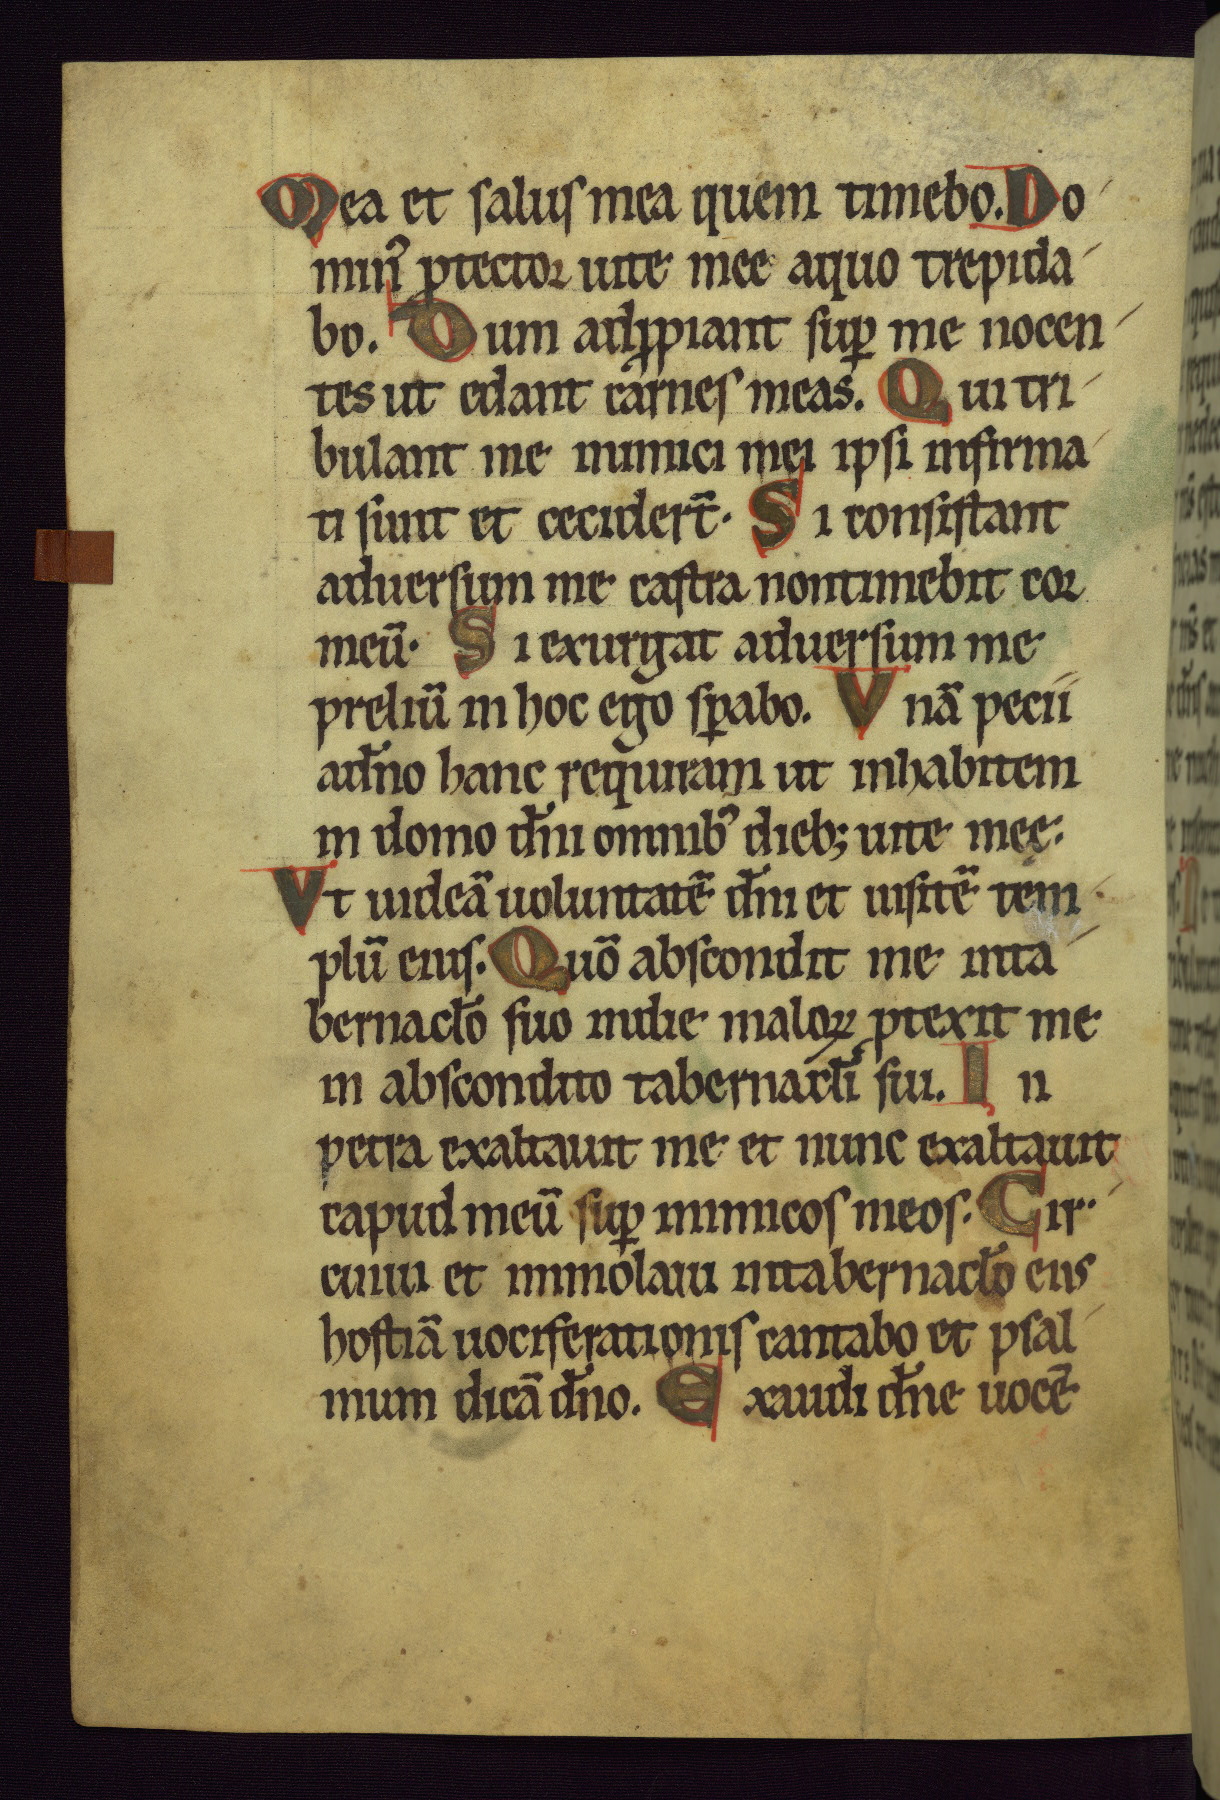 Mea et salus mea quem timebo. Do
minꝰ ꝓtector uite mee aquo trepida
bo. Dum adꝓpiant suꝑ me nocen
tes ut edant carnes meas. Qui tri
bulant me inimici mei ipsi infirma
ti sunt et cecider̄t. Si consistant
aduersum me castra nontimebit cor
meū. Si exurgat aduersum me
preliū in hoc ego sꝑabo. Vnā pecii
ad̄no hanc requiram ut inhabitem
in domo d̄ni omnibꝰ dieb; uite mee.
Vt uideā uoluntatē d̄ni et uisitē tem
plū eius. Quō abscondit me inta
bernac̄lo suo indie maloꝝ ꝓtexit me
in abscondito tabernac̄li sui. In
petra exaltauit me et nunc exaltauit
capud meū suꝑ inimicos meos. Cir
cuiui et immolaui intabernac̄lo eiꝰ
hostiā uociferationis cantabo et psal
mum dicā d̄no. Exaudi d̄ne uocē